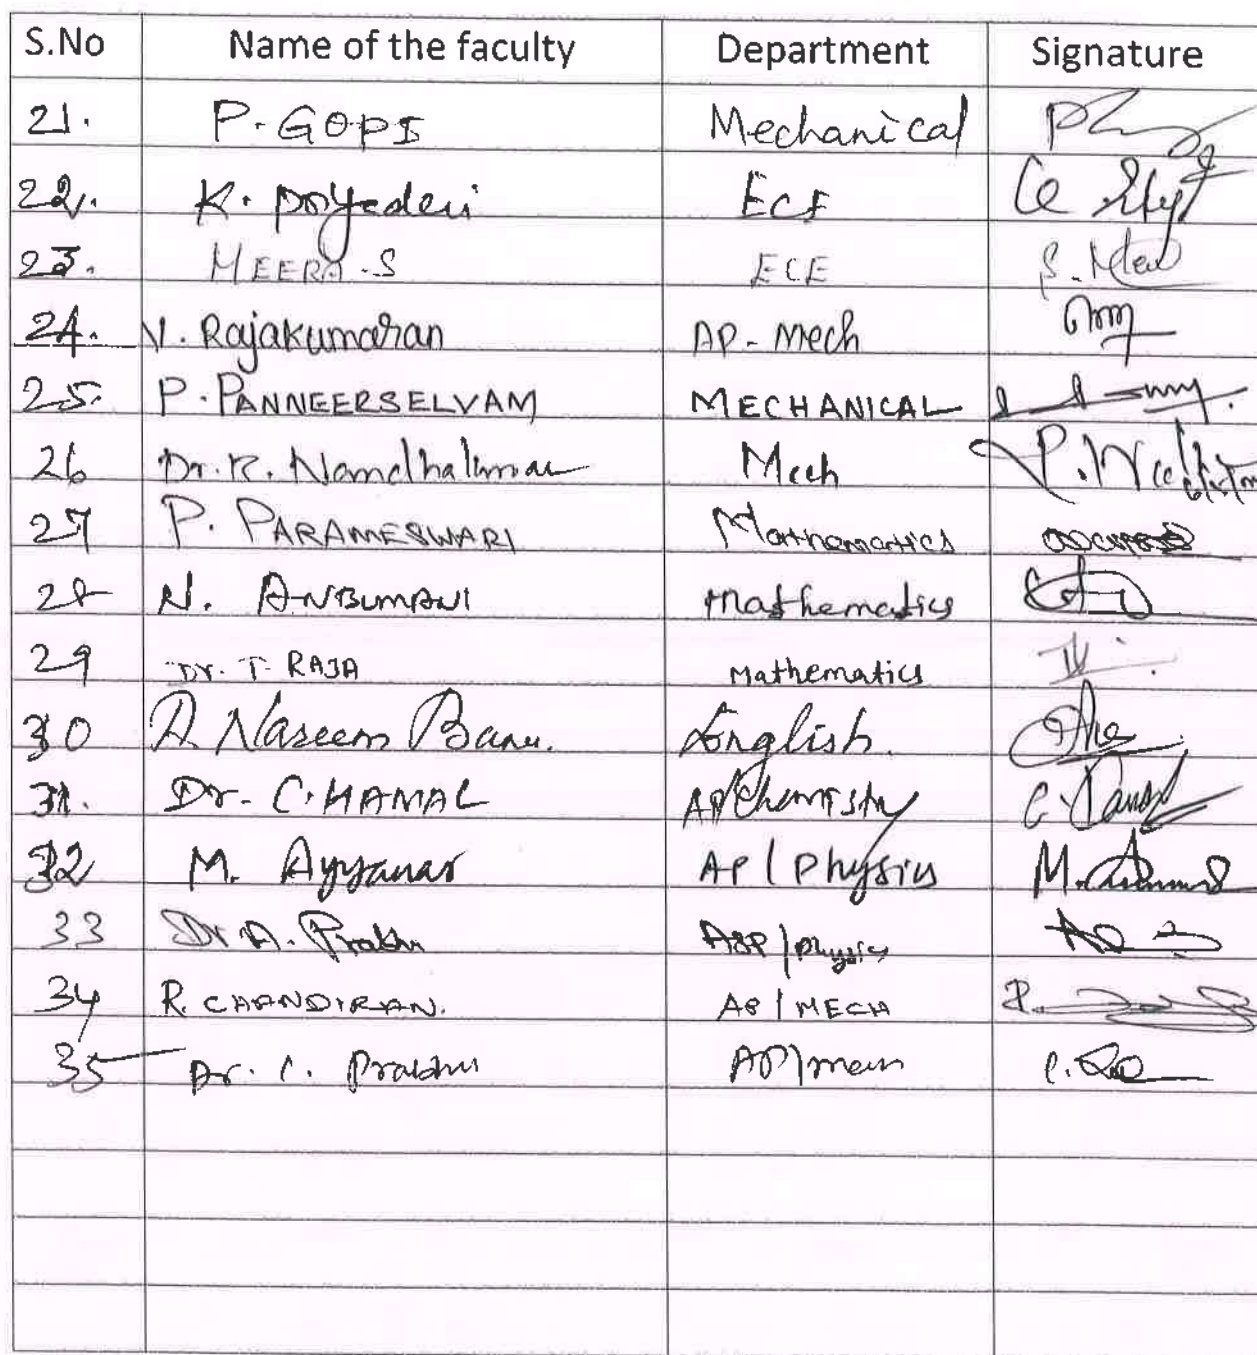 S.No Name of the faculty Department Signature
21. P. GOPI Mechanical
22. K. Priyadevi ECE
23. MEERA .S ECE S. Meera
24. V. Rajakumaran AP - Mech
25. P. PANNEERSELVAM MECHANICAL
26 Dr. R. Nandhakumar Mech
27 P. PARAMESWARI Mathematics
28 N. ANBUMANI Mathematics
29 Dr. T. RAJA Mathematics
30 A. Naseem Banu. English.
31. Dr. C. KAMAL AP/Chemistry
32 M. Ayyanar AP | Physics
33 Dr A. Prabhu ASP | Physics
34 R. CHANDIRAN. AP | MECH
35 Dr. C. Prabhu AP | mech